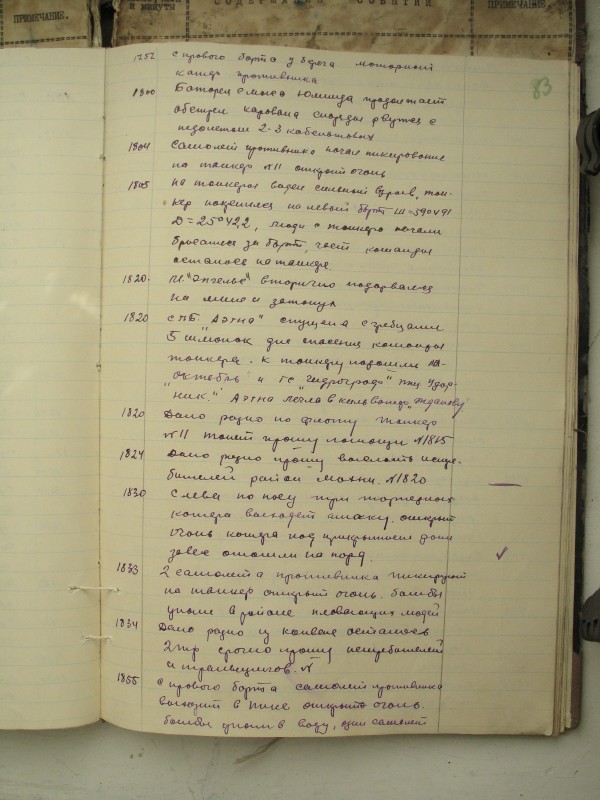 ПРИМЕЧАНИЕ.
и минуты
СОДЕРЖАНИЕ СОБЫТИЙ
ПРИМЕЧАНИЕ.
83
1752 с правого борта у берега моторный
катер противника
1800 Батарея с мыса Юминда продолжает
обстрел каравана снаряды рвутся с
недолетом 2-3 кабельтовых
1804 самолет противника начал пикирование
на танкер №11 открыт огонь
1805 на танкере виден сильный взрыв, тан-
кер накренился на левый борт Ш=59°491
Д=25°422, люди с танкера начали
бросаться за борт, часть команды
осталось на танкере
1820. "Энгельс" вторично подорвался
на мине и затонул
1820 с ПБ. Аэгна" спущена с гребцами
5 шлюпок для спасения команды
танкера. К танкеру подошли
октябрь" и ГС "Гидрограф" "Удар-
ник." Аэгна легла в кильватер "Жданову
1820 Дано радио по флоту танкер
№11 тонет прошу помощи №1815
1824 дано радио прошу выслать истре-
бителей район Мохни. №1820
1830 Слева по носу три торпедных
катера выходят атаку. открыт
огонь катера под прикрытием дым
завес отошли на норд.
1833 2 самолета противника пикируют
на танкер открыт огонь. бомбы
упали в районе плавающих людей
1834 Дано радио из конвоя осталось
2тр срочно прошу истребителей
и тральщиков. №
1855 с правого борта самолет противника
выходит в пике открыт огонь.
бомбы упали в воду, один самолет